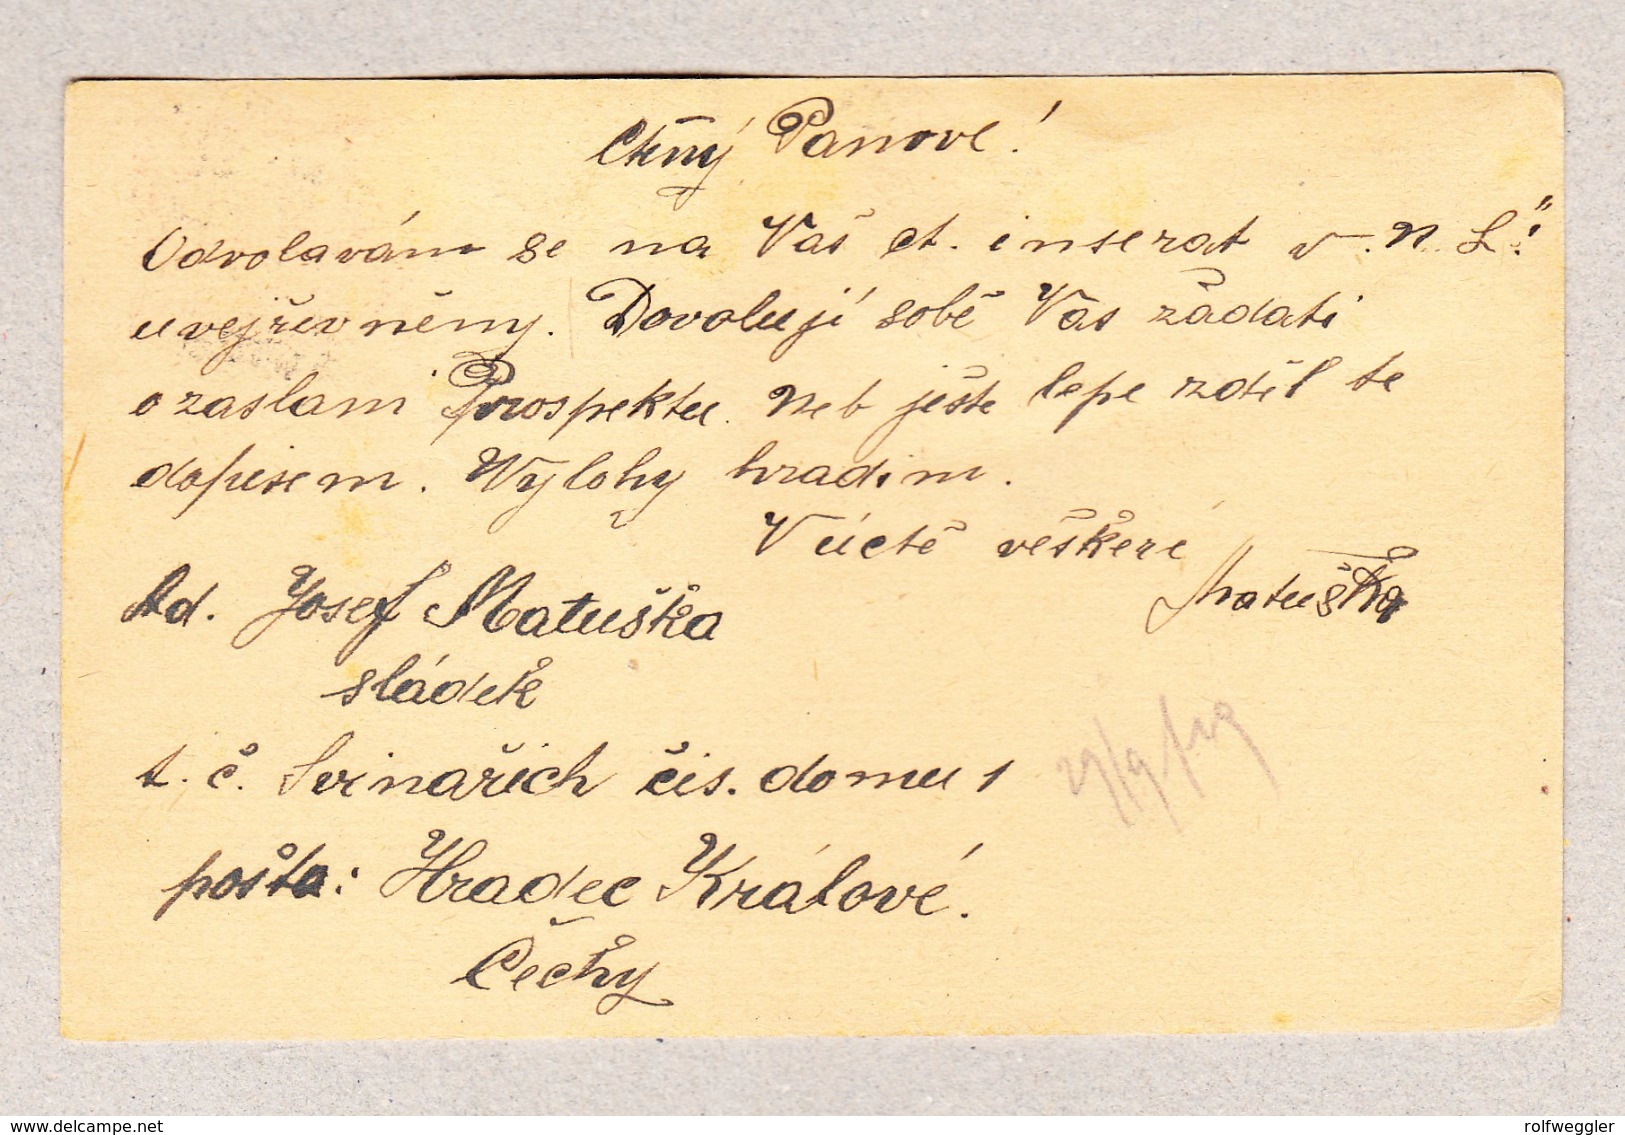 Ctěný Panové!
Odvolavám se na Váš ct. inserat v "N. L."
uvejřevněny. Dovoluji sobě Vás žádati
o zaslani Prospektu. Neb ještě lepe zděl te
dopisem. Vylohy hradim.
V úctě věškeré
Matuška
Ad. Josef Matuška
sládek
t. č. Svinařich čis. domu 1
pošta: Hradec Králové.
Čechy
delcampe.net
rolfweggler